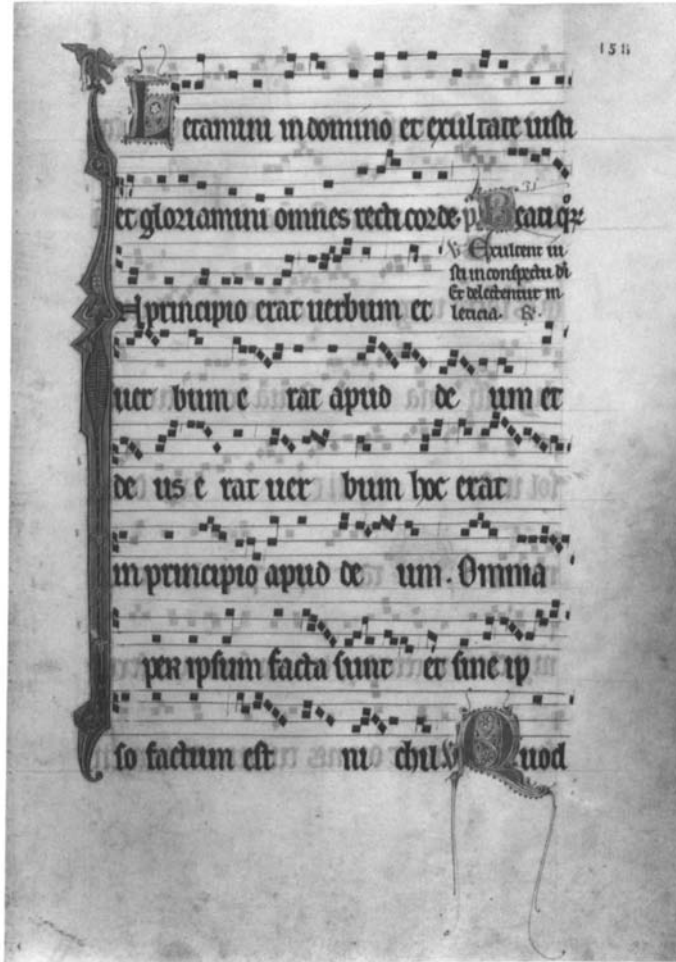 158
Letamini in domino et exultate iusti
et gloriamini omnes recti corde. p. Beati qr
V Exultent iu
sti in conspectu di
Et delectentur in
leticia. R.
A principio erat uerbum et
uer bum e rat apud de um et
de us e rat uer bum hoc erat
in principio apud de um. Omnia
per ipsum facta sunt et sine ip
so factum est ni chil. V Quod